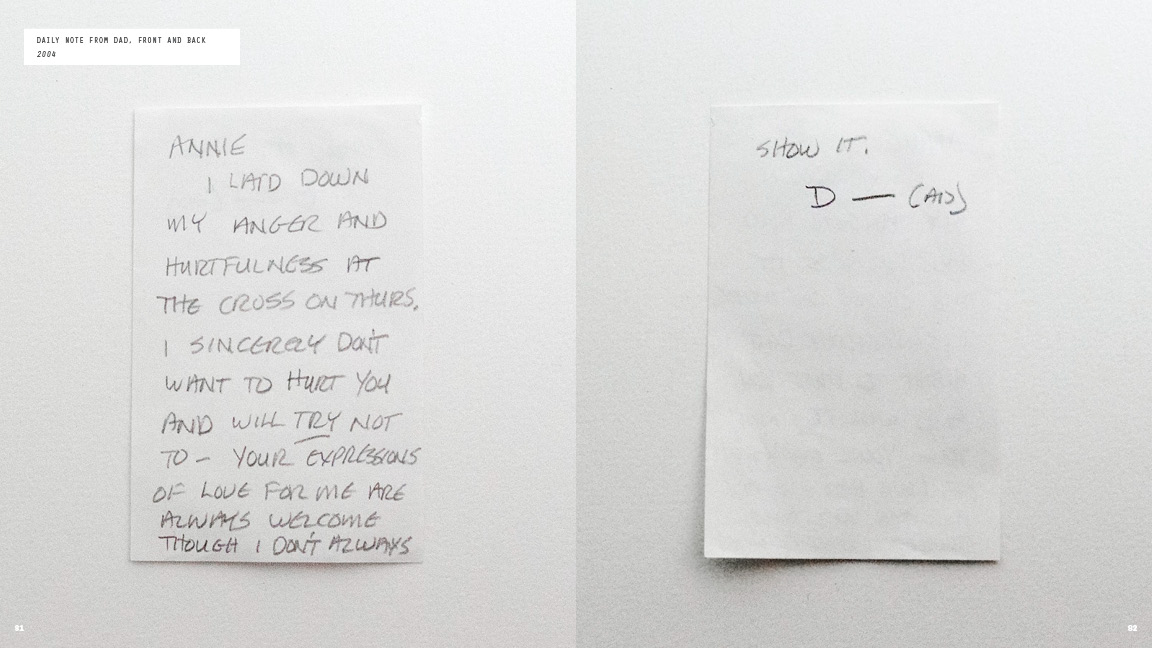 DAILY NOTE FROM DAD, FRONT AND BACK
2004
ANNIE
I LAID DOWN
MY ANGER AND
HURTFULNESS AT
THE CROSS ON THURS.
I SINCERELY DON'T
WANT TO HURT YOU
AND WILL TRY NOT
TO – YOUR EXPRESSIONS
OF LOVE FOR ME ARE
ALWAYS WELCOME
THOUGH I DON'T ALWAYS
SHOW IT.
D — (AD)
91
92